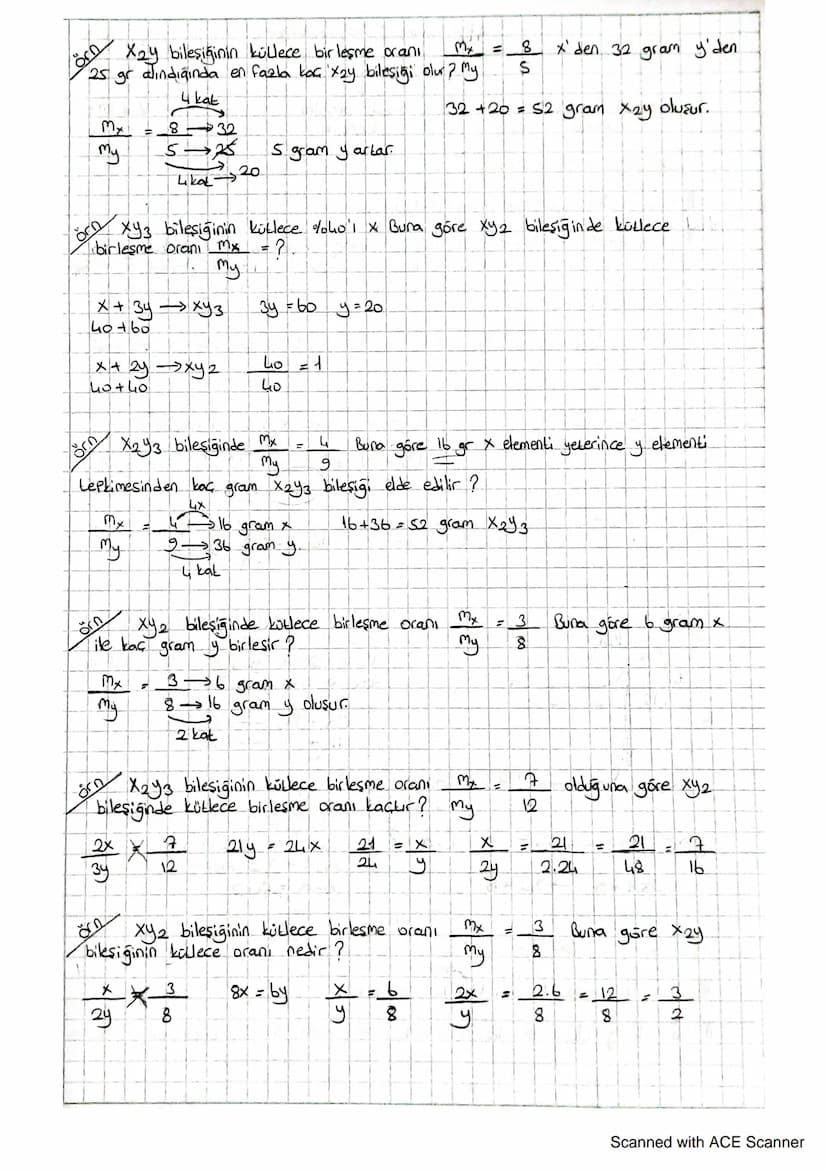 örn/ X2y bileşiğinin kütlece birleşme oranı mx/my = 8/5 x'den 32 gram y'den
25 gr alındığında en fazla kaç x2y bileşiği olur?
4 kat
32 + 20 = 52 gram x2y oluşur.
mx/my = 8 → 32
5 → 25 5 gram y artar.
4 kat → 20
örn/ xy3 bileşiğinin kütlece %40'ı x Buna göre xy2 bileşiğinde kütlece
birleşme oranı mx/my = ?
x + 3y → xy3 3y = 60 y = 20
40 + 60
x + 2y → xy2 40/40 = 1
40 + 40
örn/ X2y3 bileşiğinde mx/my = 4/9 Buna göre 16 gr x elementi yeterince y elementi
tepkimesinden kaç gram x2y3 bileşiği elde edilir?
4x
mx/my = 4 → 16 gram x 16 + 36 = 52 gram x2y3
9 → 36 gram y.
4 kat
örn/ xy2 bileşiğinde kütlece birleşme oranı mx/my = 3/8 Buna göre 6 gram x
ile kaç gram y birleşir?
mx/my = 3 → 6 gram x
8 → 16 gram y oluşur.
2 kat
örn/ X2y3 bileşiğinin kütlece birleşme oranı mx/my = 7/12 olduğuna göre xy2
bileşiğinde kütlece birleşme oranı kaçtır?
2x/3y × 7/12 21y = 24x 21/24 = x/y x/2y = 21/2.24 = 21/48 = 7/16
örn/ xy2 bileşiğinin kütlece birleşme oranı mx/my = 3/8 Buna göre x2y
bileşiğinin kütlece oranı nedir?
x/2y × 3/8 8x = 6y x/y = 6/8 2x/y = 2.6/8 = 12/8 = 3/2
Scanned with ACE Scanner